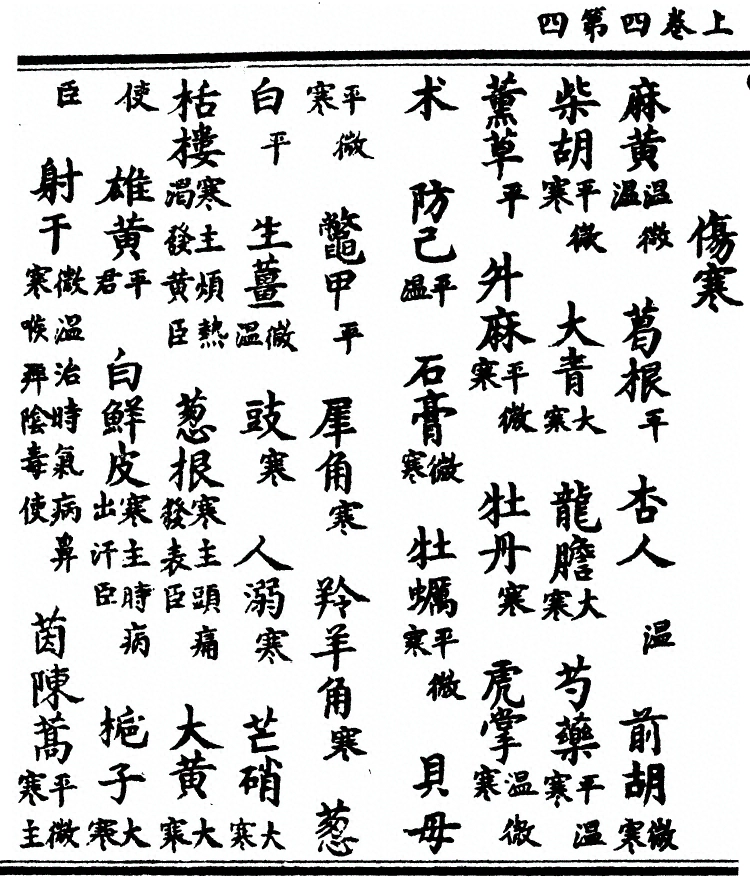 上卷四第四
傷寒
麻黃溫微溫 葛根平 杏人溫 前胡微寒
柴胡平微寒 大青大寒 龍膽大寒 芍藥平溫寒
薰草平 升麻平微寒 牡丹寒 虎掌溫微寒
朮 防己平溫 石膏微寒 牡蠣平微寒 貝母
平微寒 鼈甲平 犀角寒 羚羊角寒 葱
白平 生薑微溫 豉寒 人溺寒 芒硝大寒
栝樓寒主煩熱渴發黃臣 葱根寒主頭痛發表臣 大黃大寒
使 雄黃平君 白鮮皮寒主時病出汗臣 梔子大寒
臣 射干微溫治時氣病鼻寒喉痹陰毒使 茵陳蒿平微寒主